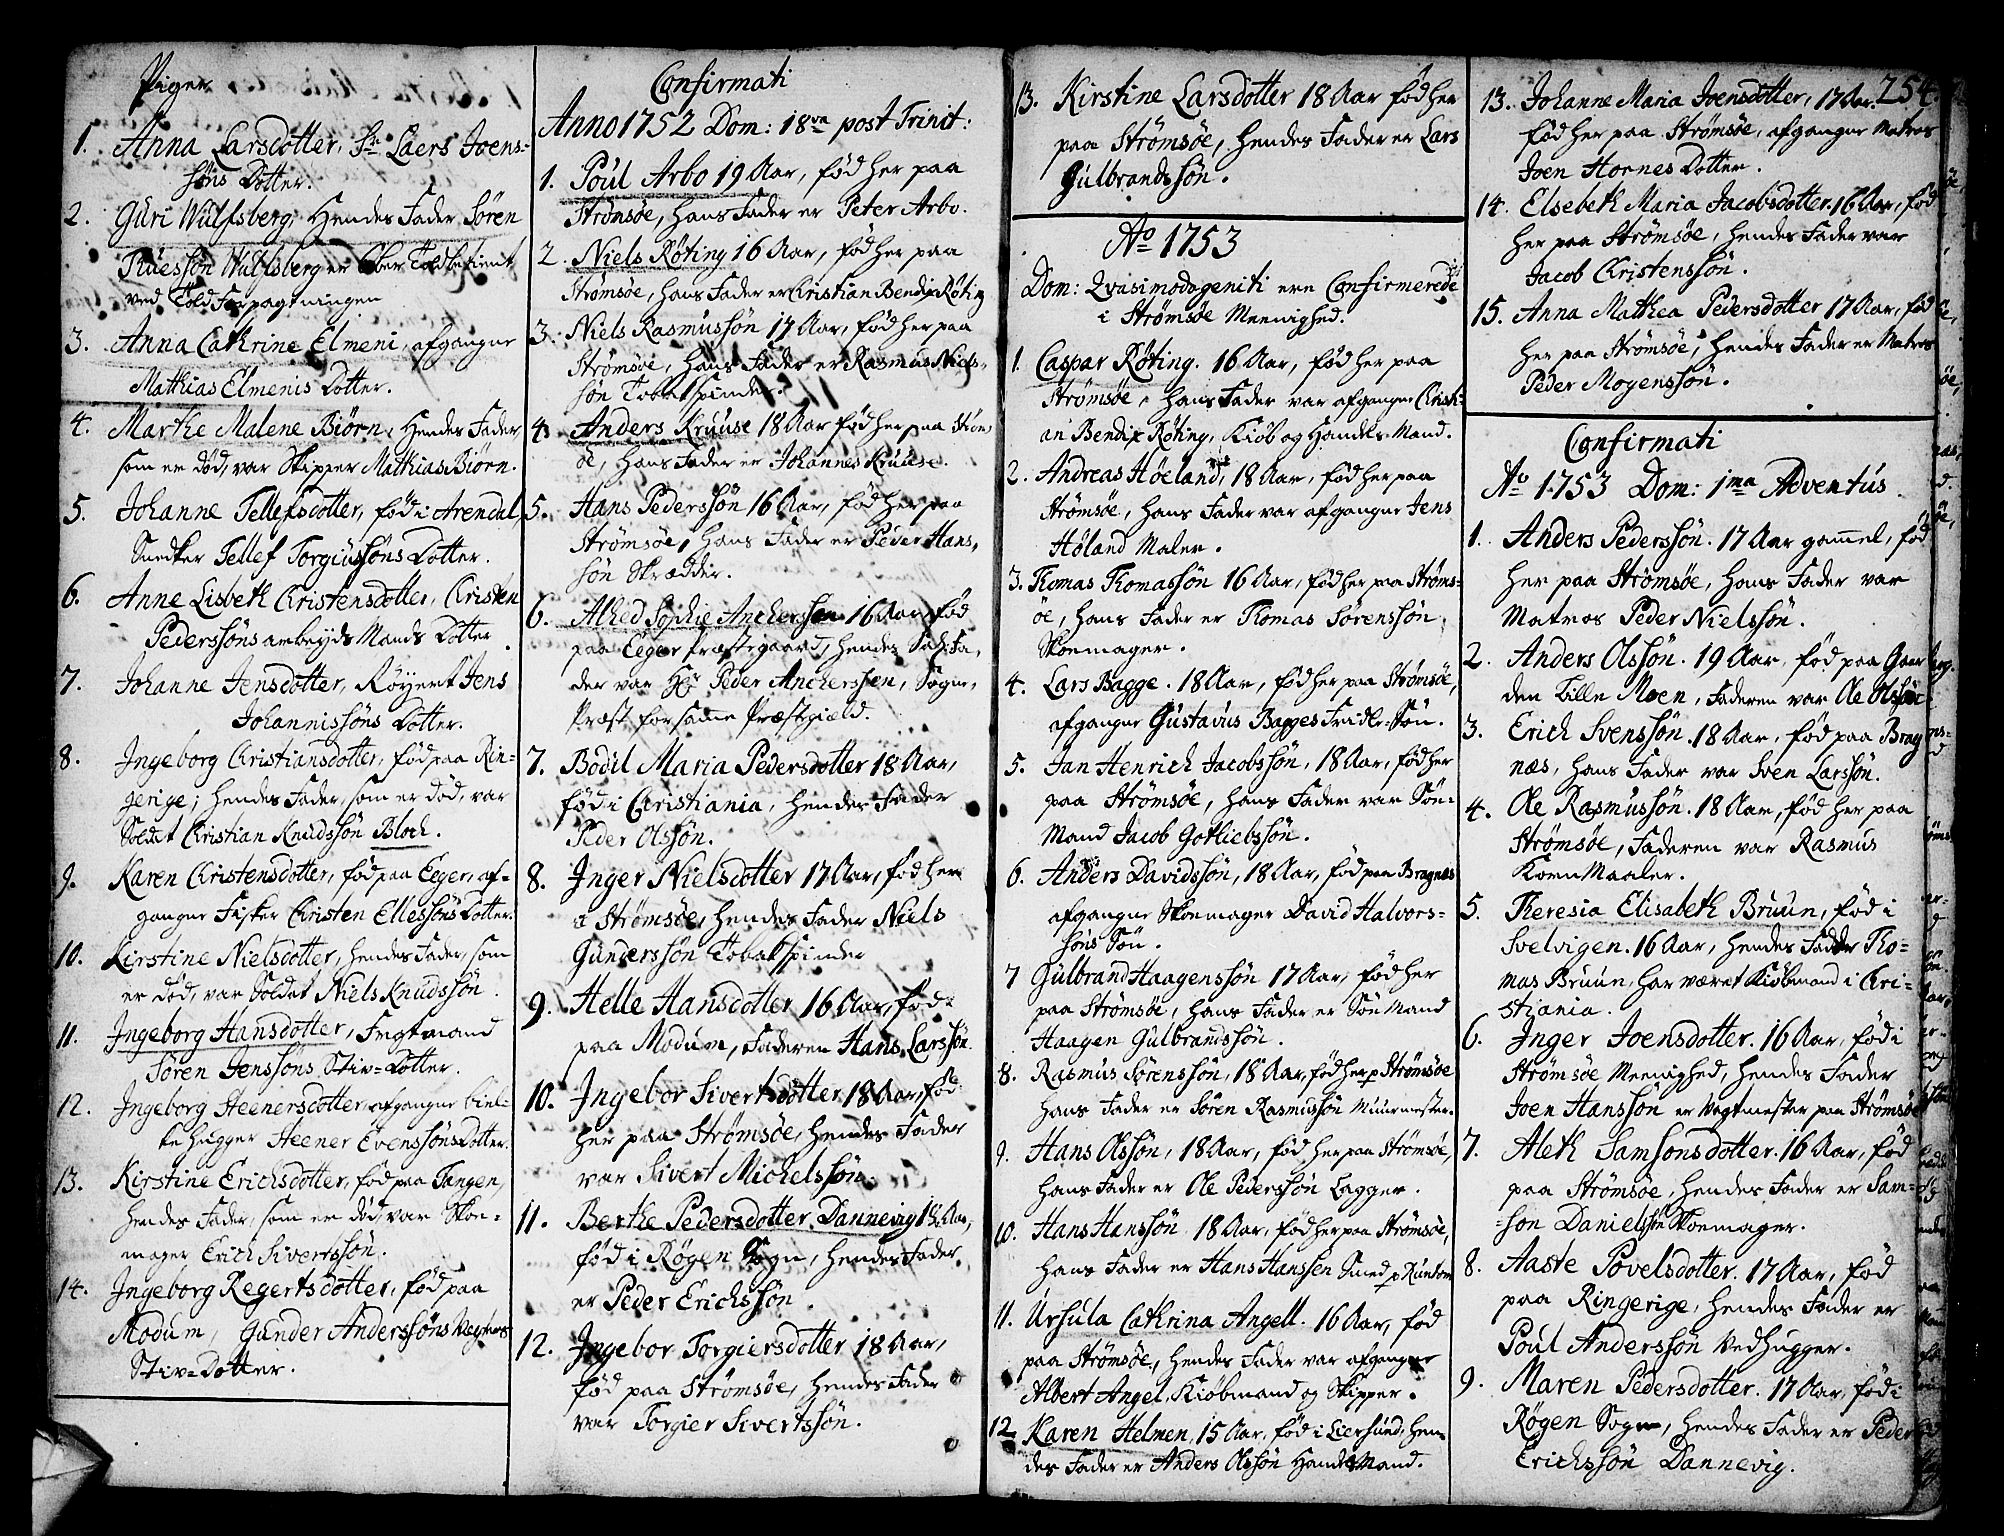 Piger
1. Anna Larsdotter, Sr. Laers Joens-
søns Dotter.
2. Guri Wulfsberg, Hendes Fader Søren
Truessøn Wulfsberg er Ober Toldbetient
ved Told Forpagtningen
3. Anna Cathrine Elmeni, afgangne
Matthias Elmenis Dotter.
4. Marthe Malene Biørn, Hendes Fader
som er død, var Skipper Mathias Biørn.
5. Johanne Tellefsdotter, fød i Arendal,
Snedker Tellef Torgiussøns Dotter.
6. Anne Lisbeth Christensdotter, Christen
Pederssøns arbeyds Mands Dotter
7. Johanne Jensdotter, Røyert Jens
Johannissøns Dotter.
8. Ingeborg Christiansdotter, fød paa Rin-
gerige, hendes Fader, som er død, var
Soldat Christian Knudssøn Bloch.
9. Karen Christensdotter, fød paa Eger, af-
gangne Fisker Christen Ellessøns Dotter.
10. Kirstine Nielsdotter, hendes Fader, som
er død, var Soldat Niels Knudssøn.
11. Ingeborg Hansdotter, Fragtmand
Søren Jenssøns Stiv-Dotter.
12. Ingeborg Heenersdotter, afgangne biel-
kehugger Heener Evenssøns Dotter.
13. Kirstine Erichsdotter, fød paa Tangen,
hendes Fader, som er død, var Skoe-
mager Erich Sivertssøn.
14. Ingeborg Regertsdotter, fød paa
Modum, Gunder Anderssøns
Stiv-Dotter.
Confirmati
Anno 1752 Dom: 18va post Trinit:
1. Poul Arbo 19 Aar, fød her paa
Strømsøe, hans Fader er Peter Arbo.
2. Niels Røting 16 Aar, fød her paa
Strømsøe, hans Fader er Christian Bendix Røting
3. Niels Rasmussøn 17 Aar, fød her paa
Strømsøe, hans Fader er Rasmus Niels-
søn Tobakspinder.
4. Anders Kruuse 18 Aar fød her paa Strøms
øe, hans Fader er Johannes Kruuse.
5. Hans Pederssøn 16 Aar, fød her paa
Strømsøe, hans Fader er Peder Hans-
søn Skrædder.
6. Alhed Sophie Ancherssen 16 Aar, fød
paa Eeger Præstegaard, hendes Sal: Fa-
der var Hr Peder Ancherssen, Sogne-
Præst for samme Præstegield.
7. Bodil Maria Pedersdotter 18 Aar,
fød i Christiania, hendes Fader
Peder Olssøn.
8. Inger Nielsdotter 17 Aar, fød her
a Strømsøe, hendes Fader Niels
Gunderssøn Tobakspinder
9. Helle Hansdotter 16 Aar, fød
paa Modum, Faderen Hans Larssøn
10. Ingebor Sivertsdotter 18 Aar, fød
her paa Strømsøe, hendes Fader
var Sivert Michelssøn.
11. Berthe Pedersdotter Dannevig 18 Aar,
fød i Røgen Sogn, hendes Fader
er Peder Erichssøn.
12. Ingebor Torgiersdotter 18 Aar,
fød paa Strømsøe, hendes Fader
var Torgier Sivertssøn.
13. Kirstine Larsdotter 18 Aar fød her
paa Strømsøe, hendes Fader er Lars
Gulbrandssøn.
Ao 1753
Dom: Qvasimodogeniti ere Confirmerede
i Strømsøe Meenighed.
1. Caspar Røting. 16 Aar, fød her paa
Strømsøe, hans Fader var afgangne Christi-
an Bendix Røting, Kiøb og Handels-Mand.
2. Andreas Høeland, 18 Aar, fød her paa
Strømsøe, hans Fader var afgangne Jens
Høland Maler.
3. Thomas Thomassøn 16 Aar, fød her paa Strøms-
øe, hans Fader er Thomas Sørenssøn
Skoemager.
4. Lars Bagge. 18 Aar, fød her paa Strømsøe,
afgangne Gustavus Bagges Fridle-Søn.
5. Jan Henrich Jacobssøn, 18 Aar, fød her
paa Strømsøe, hans Fader var Søe-
Mand Jacob Gotliebssøn.
6. Anders Davidssøn, 18 Aar, fød paa Bragnæs
afgangne Skoemager David Halvors-
søns Søn.
7 Gulbrand Haagenssøn 17 Aar, fød her
paa Strømsøe, hans Fader er Søe Mand
Haagen Gulbrandssøn.
8. Rasmus Sørenssøn, 18 Aar, fød her p Strømsøe
hans Fader er Søren Rasmussøn Muurmester.
9. Hans Olssøn, 18 Aar, fød her paa Strømsøe,
hans Fader er Ole Pederssøn Lagger.
10. Hans Hanssøn 18 Aar, fød her paa Strømsøe,
hans Fader er Hans Hanssen Smed p Kuntom
11. Ursula Cathrina Angell. 16 Aar, fød
paa Strømsøe, hendes Fader var afgangne
Albert Angel, Kiøbmand og Skipper.
12 Karen Helmen, 15 Aar, fød i Liersund, hen-
des Fader er Anders Olssøn HandelsMand.
254.
13. Johanne Maria Joensdotter, 17 Aar.
fød her paa Strømsøe, afgangne Matros
Joen Hornes Dotter.
14. Elsebeth Maria Jacobsdotter. 16 Aar, fød
her paa Strømsøe, hendes Fader var
Jacob Christenssøn.
15. Anna Mathea Pedersdotter 17 Aar, fød
her paa Strømsøe, hendes Fader er Matros
Peder Mogenssøn.
Confirmati
Ao 1753 Dom: 1ma Adventus.
1. Anders Pederssøn. 17 Aar gammel, fød
her paa Strømsøe, hans Fader var
Matros Peder Nielssøn.
2. Anders Olssøn. 19 Aar, fød paa Gaar
den Lille Moen, Faderen var Ole Olssøn
3. Erich Svenssøn. 18 Aar, fød paa Brag
næs, hans Fader var Sven Larssøn.
4. Ole Rasmussøn. 18 Aar, fød her paa
Strømsøe, Faderen var Rasmus
KornMaaler.
5. Theresia Elisabeth Bruun, fød i
Svelvigen. 16 Aar, hendes Fader Tho-
mas Bruun, har været Kiøbmand i Chri-
stiania.
6. Inger Joensdotter. 16 Aar, fød i
Strømsøe Meenighed, hendes Fader
Joen Hanssøn er Vagtmester paa Strømsøe
7. Aleth Samsonsdotter. 16 Aar, fød
paa Strømsøe, hendes Fader er Sam-
son Danielssøn Skoemager.
8. Aaste Povelsdotter. 17 Aar, fød
paa Ringerige, hendes Fader er
Poul Anderssøn Vedhugger.
9. Maren Pedersdotter. 17 Aar, fød i
Røgen Sogn, hendes Fader er Peder
Erichssøn Dannevig.